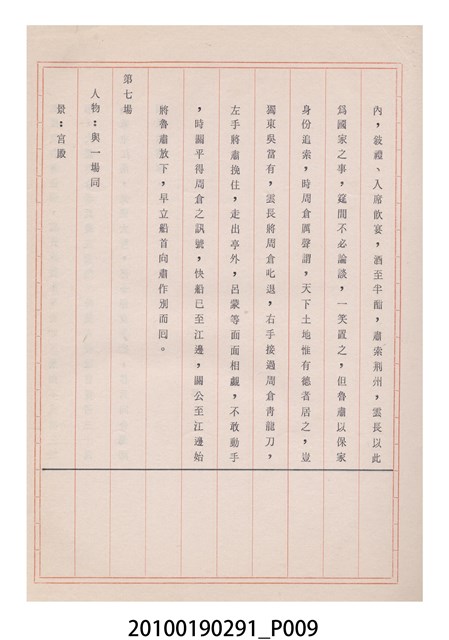 內，敍禮、入席飲宴，酒至半酣，肅索荊州，雲長以此
爲國家之事，筵間不必論談，一笑置之，但魯肅以保家
身份追索，時周倉厲聲謂，天下土地惟有德者居之，豈
獨東吳當有，雲長將周倉叱退，右手接過周倉青龍刀，
左手將肅挽住，走出亭外，呂蒙等面面相覷，不敢動手
，時關平得周倉之訊號，快船已至江邊，關公至江邊始
將魯肅放下，早立船首向肅作別而囘。
第七場
人物：與一場同
景：宮殿
20100190291_P009